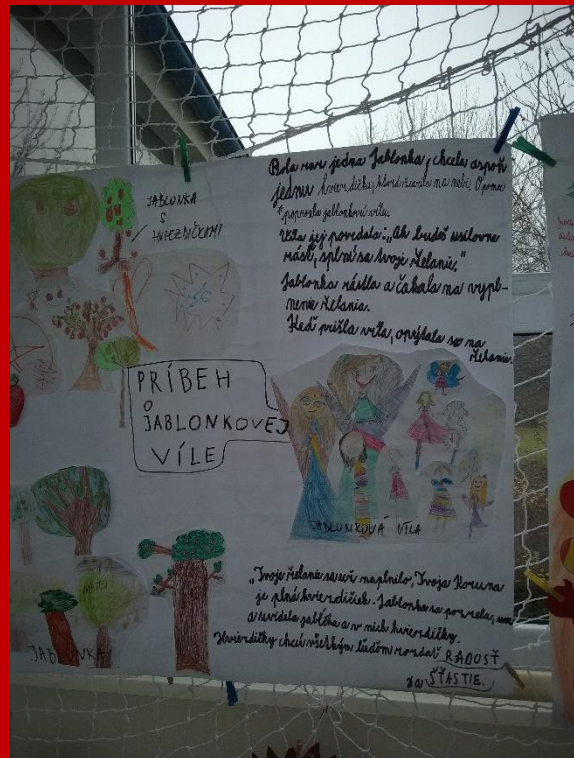 JABLONKA
S
HVIEZDIČKAMI
Bola raz jedna Jablonka, chcela aspoň
jednu hviezdičku, ktorá žiarila na nebi. O pomoc
poprosila jablonkovú vílu.
Víla jej povedala: „Ak budeš usilovne
rásť, splní sa tvoje želanie."
Jablonka rástla a čakala na vypl-
nenie želania.
Keď prišla víla, opýtala sa na
želanie.
PRÍBEH
O
JABLONKOVEJ
VÍLE
JABLUNKOVÁ VÍLA
„Tvoje želanie sa už naplnilo, Tvoja Koruna
je plná hviezdičiek. Jablonka sa pozrela,
a uvidela jabĺčka a v nich hviezdičky.
Hviezdičky chcú všetkým ľuďom rozdať RADOSŤ
za ŠŤASTIE.
JABLONKA